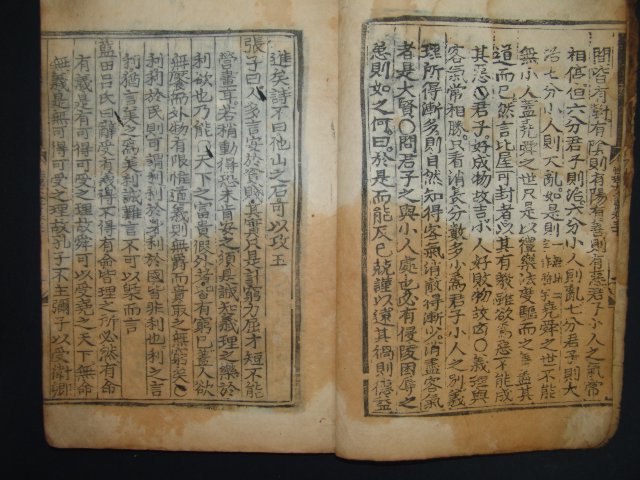 問皆有對有陰則有陽有善則有惡君子小人之氣常
相停但六分君子則治六分小人則亂七分君子則大
治七分小人則大亂如是則堯舜之世不能
無小人蓋堯舜之世只是以禮樂法度驅而之善盡其
道而已然言比屋可封者以其有敎雖欲爲惡不能成
其惡○君子好成物故吉小人好敗物故凶○義理與
客氣常相勝只看消長分數多少爲君子小人之別義
理所得漸多則自然知得客氣消散得漸少消盡客氣
者是大賢○問君子之與小人處也必有侵陵困辱之
患則如之何曰於是而能反己兢謹以遠其禍則德益
進矣詩不曰他山之石可以攻玉
張子曰人多言安於貧賤其實只是計窮力屈才短不能
營畫耳若稍動得恐未肯安之須是誠知義理之樂於
利欲也乃能○天下之富貴假外者皆有窮已蓋人欲
無饜而外物有限惟道義則無爵而貴取之無窮矣○
利利於民則可謂利利於身利於國皆非利也利之言
利猶言美之爲美利誠難言不可以槩而言
藍田呂氏曰辭受有義得不得有命皆理之所必然有命
有義是有可得可受之理故舜可以受堯之天下無命
無義是無可得可受之理故孔子不主彌子以受衛卿